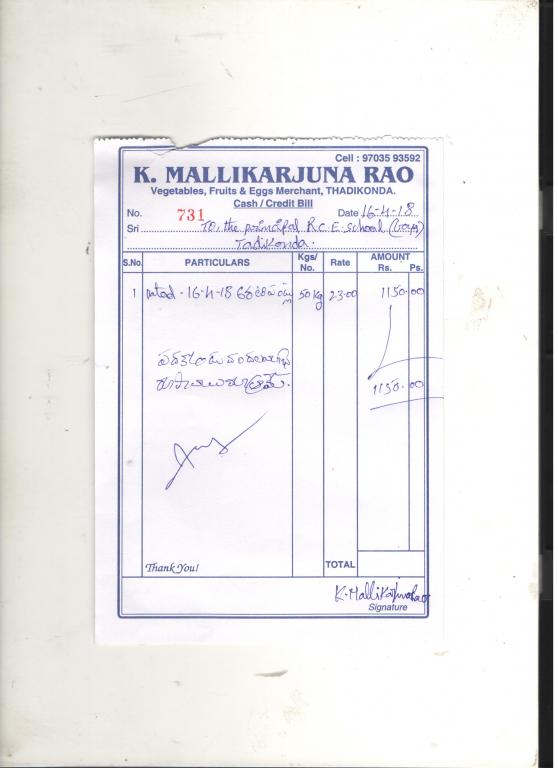 Cell : 97035 93592
K. MALLIKARJUNA RAO
Vegetables, Fruits & Eggs Merchant, THADIKONDA.
Cash / Credit Bill
No. 731 Date 16-4-18
Sri To, the principal R.C.E. school (
Tadikonda.
S.No. PARTICULARS Kgs/ No. Rate AMOUNT Rs. Ps.
1 16-4-18 50 kg 23.00 1150.00
1150.00
Thank You! TOTAL
K. Mallikarjuna Rao
Signature